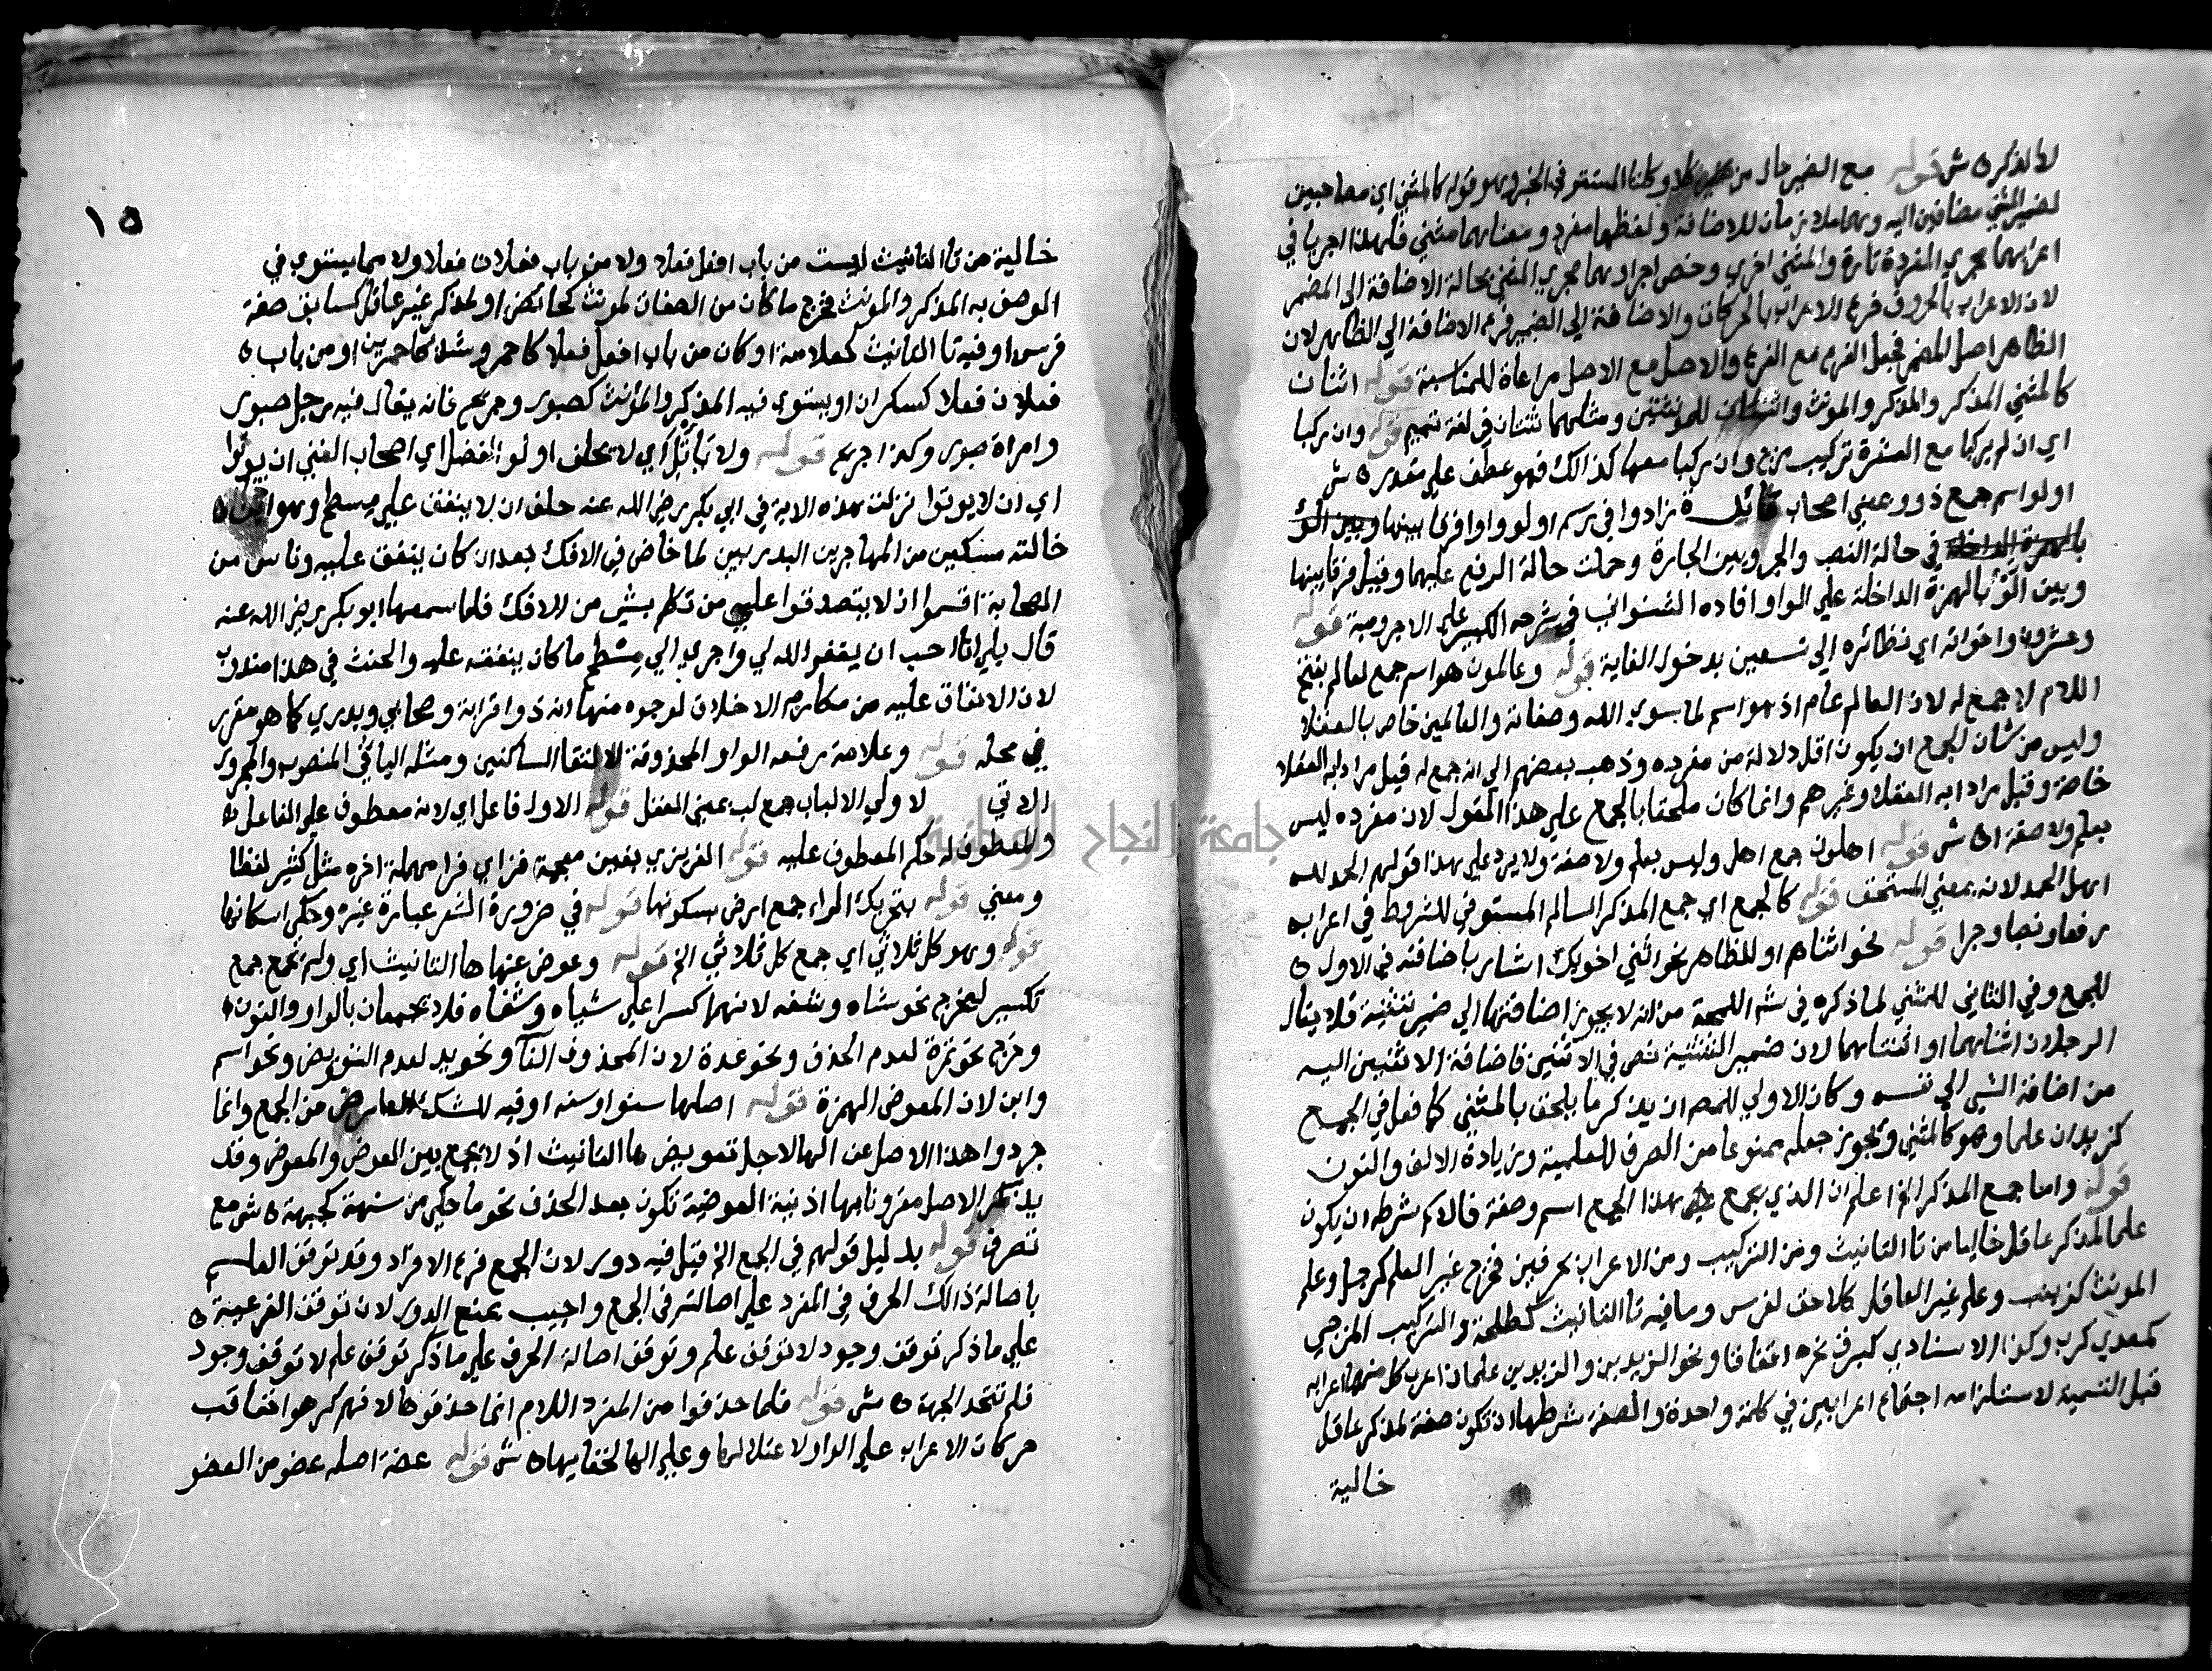 لا لذكره ش قوله مع الضمير حال من كلا وكلتا المستتر في الخبر وهو قوله كالمثني اي مصاحبين
لضمير المثني مضافين اليه وهما ملازمان للاضافة ولفظهما مفرد ومعناهما مثني فلهذا اجريا في
اعرابهما مجري المفرد تارة والمثني اخري وخص اجراوهما مجري المثني بحالة الاضافة الي المضمر
لان الاعراب بالحروف فرع الاعراب بالحركات والاضافة الي الضمير فرع الاضافة الي الظاهر لان
الظاهر اصل المضمر فجعل الفرع مع الفرع والاصل مع الاصل مراعاة للمناسبة قوله اثنان
كالمثني المذكر والمذكر والمونث واثنتان للمونثتين ومثلهما ثنتان في لغة تميم قوله وان ركبا
اي ان لم يركبا مع العشرة تركيب مزج وان ركبا معها كذالك فهو عطف علي مقدر ه ش
اولو اسم جمع ذو وبمعني اصحاب فائدة زادوا في رسم اولو واوا فرقا بينها وبين الؤ
بالهمزة الداخلة في حالة النصب والجر وبين الجارة وحملت حالة الرفع عليهما وقيل فرقا بينها
وبين الؤ بالهمزة الداخلة علي الواو افاده الشنواني في شرحه الكبير علي الاجرومية قوله
وعشرون واخواته اي نظائره الي تسعين بدخول الغاية قوله وعالمون هو اسم جمع لعالم بفتح
اللام لا جمع له لان العالم عام اذ هو اسم لما سوي الله وصفاته والعالمين خاص بالعقلا
وليس من شان الجمع ان يكون اقل دلالة من مفرده وذهب بعضهم الي انه جمع له قيل مرادا به العقلا
خاصة وقيل مرادا به العقلا وغيرهم وانما كان ملحقا بالجمع علي هذا القول لان مفرده ليس
بعلم ولا صفة اه ش قوله اهلون جمع اهل وليس بعلم ولا صفة ولا يرد علي هذا قولهم الحمد لله
اهل الحمد لانه بمعني المستحق قوله كالجمع اي جمع المذكر السالم المستوفي للشروط في اعرابه
رفعا ونصبا وجرا قوله نحو اثناهم او للظاهر نحو اثني اخويك اشار باضافته في الاول ه
للجمع وفي الثاني للمثني لما ذكره في شرح اللمحة من انه لا يجوز اضافتها الي ضمير تثنية فلا يقال
الرجلان اثناهما او اثنتاهما لان ضمير التثنية نص في الاثنين فاضافة الاثنين اليه
من اضافة الشي الي نفسه وكان الاولي للمص ان يذكر ما يلحق بالمثني كما فعل في الجمع
كزيدان علما وهو كالمثني ويجوز جعله ممنوعا من الصرف للعلمية وزيادة الالف والنون
قوله واما جمع المذكر الخ اعلم ان الذي يجمع هذا الجمع اسم وصفة فالاسم شرطه ان يكون
علما لمذكر عاقل خاليا من تا التانيث ومن التركيب ومن الاعراب بحرفين فخرج غير العلم كرجل وعلم
المونث كزينب وعلم غير العاقل كلاحق لفرس وما فيه تا التانيث كطلحة والتركيب المزجي
كمعدي كرب وكذا الاسنادي كبرق نحره اتفاقا ونحو الزيدين والزيدين علمان اعرب كل منهما اعرابه
قبل التسمية لاستلزامه اجتماع اعرابين في كلمة واحدة والصفة شرطها ان تكون صفة لمذكر عاقل
خالية
١٥
خالية من تا التانيث ليست من باب افعل فعلا ولا من باب فعلان فعلا ولا مما يستوي في
الوصف به المذكر والمونث فخرج ما كان من الصفات لمونث كحائض او لمذكر غير عاقل كسابق صفة
فرس او فيه تا التانيث كعلامة او كان من باب افعل فعلا كاحمر وشذ كاحمرين او من باب ه
فعلان فعلا كسكران او يستوي فيه المذكر والمؤنث كصبور وجريح فانه يقال فيه رجل صبور
وامراة صبور وكذا جريح قوله ولا ياتل اي لا يحلف اولوا الفضل اي اصحاب الغني ان يوتوا
اي ان لا يوتوا نزلت هذه الاية في ابي بكر رضي الله عنه حلف ان لا ينفق علي مسطح وهو ابن
خالته مسكين من المهاجرين البدريين لما خاض في الافك بعد ان كان ينفق عليه وناس من
الصحابة اقسموا ان لا يتصدقوا علي من تكلم بشي من الافك فلما سمعها ابو بكر رضي الله عنه
قال بلي انا احب ان يغفر الله لي واجري الي مسطح ما كان ينفقه عليه والحنث في هذا مندوب
لان الانفاق عليه من مكارم الاخلاق لوجوه منها انه ذو قرابة وصحابي وبدري كما هو مقرر
في محله قوله وعلامة رفعه الواو المحذوفة لالتقا الساكنين ومثله اليا في المنصوب والمجرور
الاتي لاولي الالباب جمع لب بمعني العقل قوله الاول فاعل اي لانه معطوف علي الفاعل ه
والمعطوف له حكم المعطوف عليه قوله الغزيزي بغين معجمة فزاي فرا مهملة اخره مثل كثير لفظا
ومعني قوله بتحريك الراء جمع ارض بسكونها قوله في ضرورة الشعر عبارة غيره وحكي اسكانها
قوله وهو كل ثلاثي اي جمع كل ثلاثي الخ قوله وعوض عنها ها التانيث اي ولم تجمع جمع
تكسير ليخرج نحو شاه وشفه لانهما كسرا علي شياه وشفاه فلا يجمعان بالواو والنون
وخرج نحو تمرة لعدم الحذف ونحو عدة لان المحذوف الفآ ونحو يد لعدم التعويض ونحو اسم
وابن لان المعوض الهمزة قوله اصلها سنو او سنه او فيه للشك العارض من الجمع وانما
جردوا هذا الاصل عن الها لاجل تعويض ها التانيث اذ لا يجمع بين العوض والمعوض وقد
يذكر الاصل مقرونا بها اذ نية العوضية تكون بعد الحذف نحو ما حكي من سنهة كجبهة ه ش مع
تصرف قوله بدليل قولهم في الجمع الخ قيل فيه دور لان الجمع فرع الافراد وقد توقف العلم
باصالة ذالك الحرف في المفرد علي اصالته في الجمع واجيب بمنع الدور لان توقف الفرعية ه
علي ما ذكر توقف وجود لا توقف علم وتوقف اصالة الحرف علي ما ذكر توقف علم لا توقف وجود
فلم تتحد الجهة ه ش قوله فلما حذفوا من المفرد اللام انما حذفوها لانهم كرهوا تعاقب
حركات الاعراب علي الواو لاعتلالها وعلي الها لخفايها ه ش قوله عضة اصله عضو من العضو
جامعة النجاح الوطنية